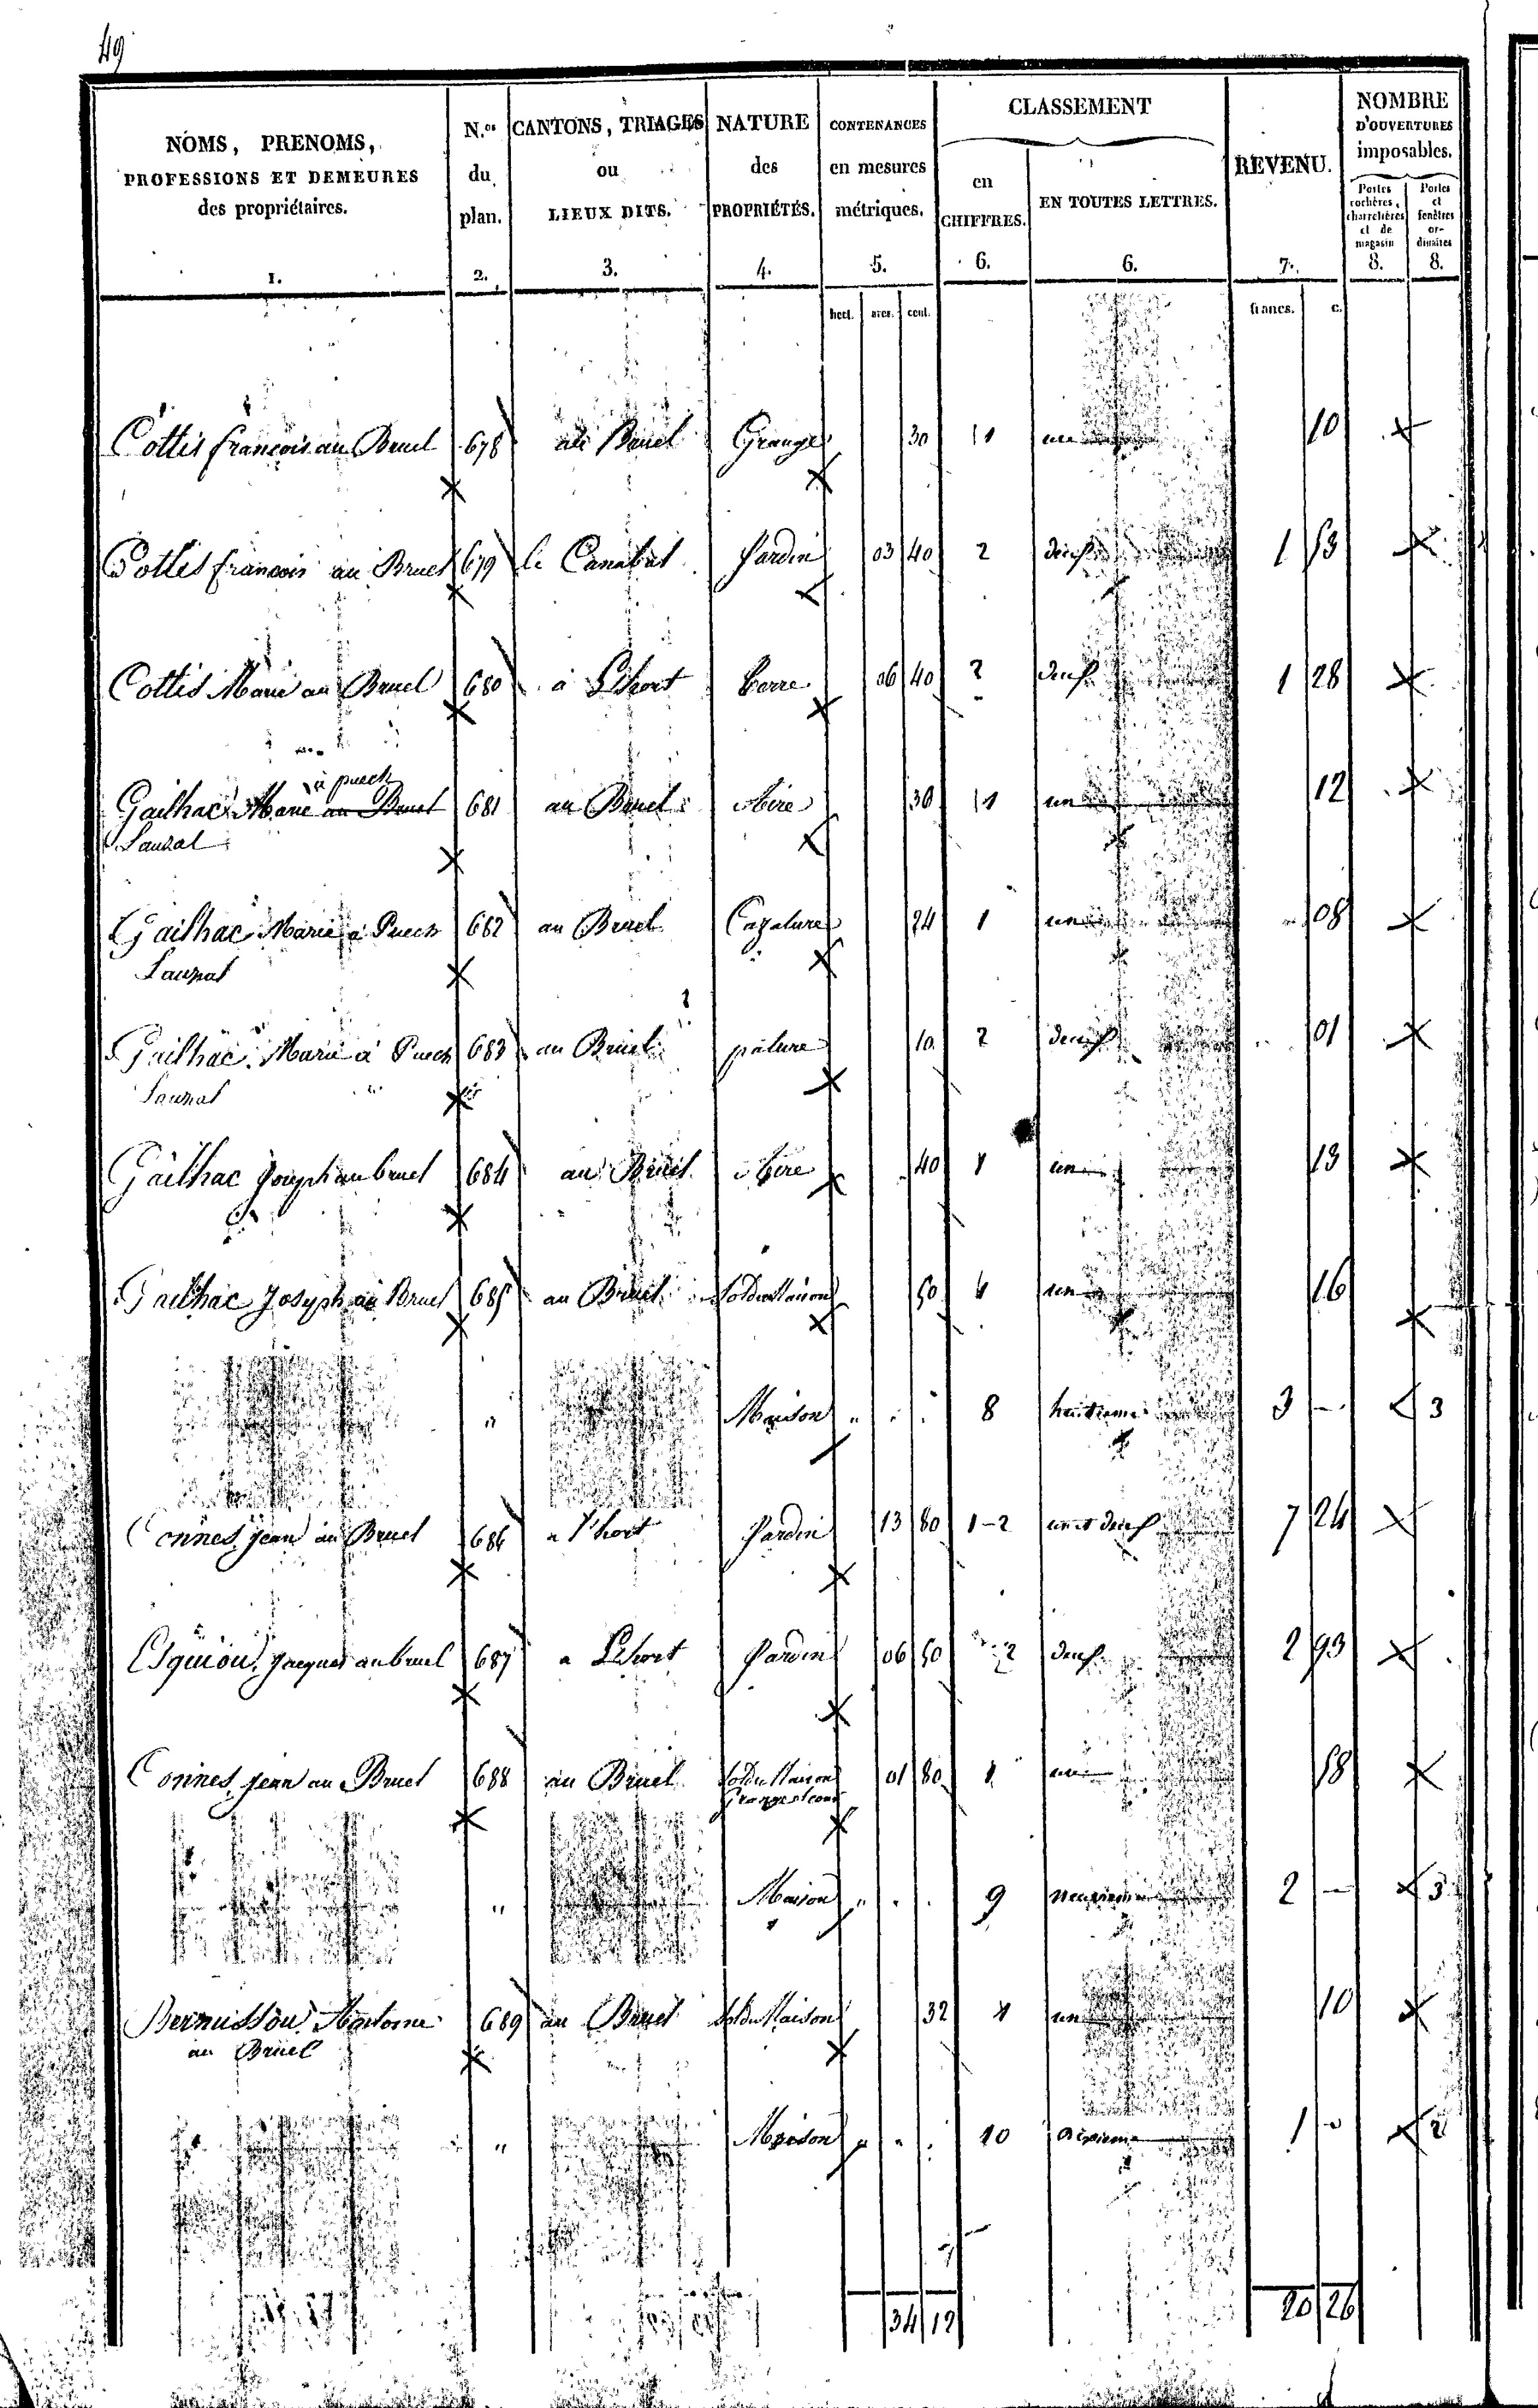 49
NOMS, PRENOMS, PROFESSIONS ET DEMEURES des propriétaires. 1.
N.os du plan. 2.
CANTONS, TRIAGES ou LIEUX DITS. 3.
NATURE des PROPRIÉTÉS. 4.
CONTENANCES en mesures métriques. 5.
CLASSEMENT
en CHIFFRES. 6.
EN TOUTES LETTRES. 6.
REVENU. 7.
NOMBRE D'OUVERTURES imposables.
Portes cochères, charretières et de magasin 8.
Portes et fenêtres ordinaires 8.
hect. ares. cent. francs. c.
Cottis françois au Bruel 678 au Bruel Grange 30 1 un 10
Cottis françois au Bruel 679 le Canabal Jardin 03 40 2 deux 1 53
Cottis Marie au Bruel 680 à L'hort terre 06 40 2 deux 1 28
à puech
Gailhac Marie au Bruel 681 au Bruel Aire 30 1 un 12
Lauzal
Gailhac Marie à Puech 682 au Bruel 24 1 un 08
Lauzal
Gailhac Marie à Puech 683 au Bruel pâture 10 2 deux 01
Lauzal
Gailhac Joseph au bruel 684 au Bruel Aire 40 1 un 13
Gailhac Joseph au Bruel 685 au Bruel Sol de Maison 50 1 un 16
" Maison " 8 huitième 3 — 3
Connes jean au Bruel 686 a l'hort Jardin 13 80 1-2 un et deux 7 24
Esquiou Jacques au bruel 687 a L'hort Jardin 06 50 2 deux 2 93
Connes jean au Bruel 688 au Bruel Sol de Maison 01 80 1 un 58
Grange et cour
" Maison " 9 neuvieme 2 — 3
Antoine 689 au Bruel Sol de Maison 32 1 un 10
au Bruel
" Maison " 10 dixieme 1 " 2
34 12 20 26